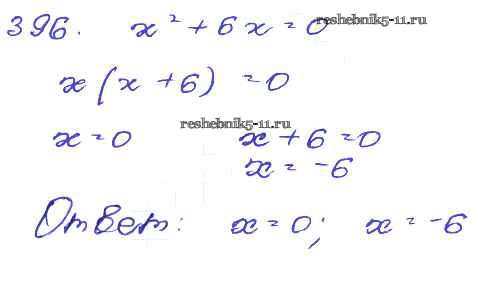 396. x² + 6x = 0 reshebnik5-11.ru
x(x + 6) = 0
reshebnik5-11.ru
x = 0 x + 6 = 0
x = -6
Ответ: x = 0; x = -6